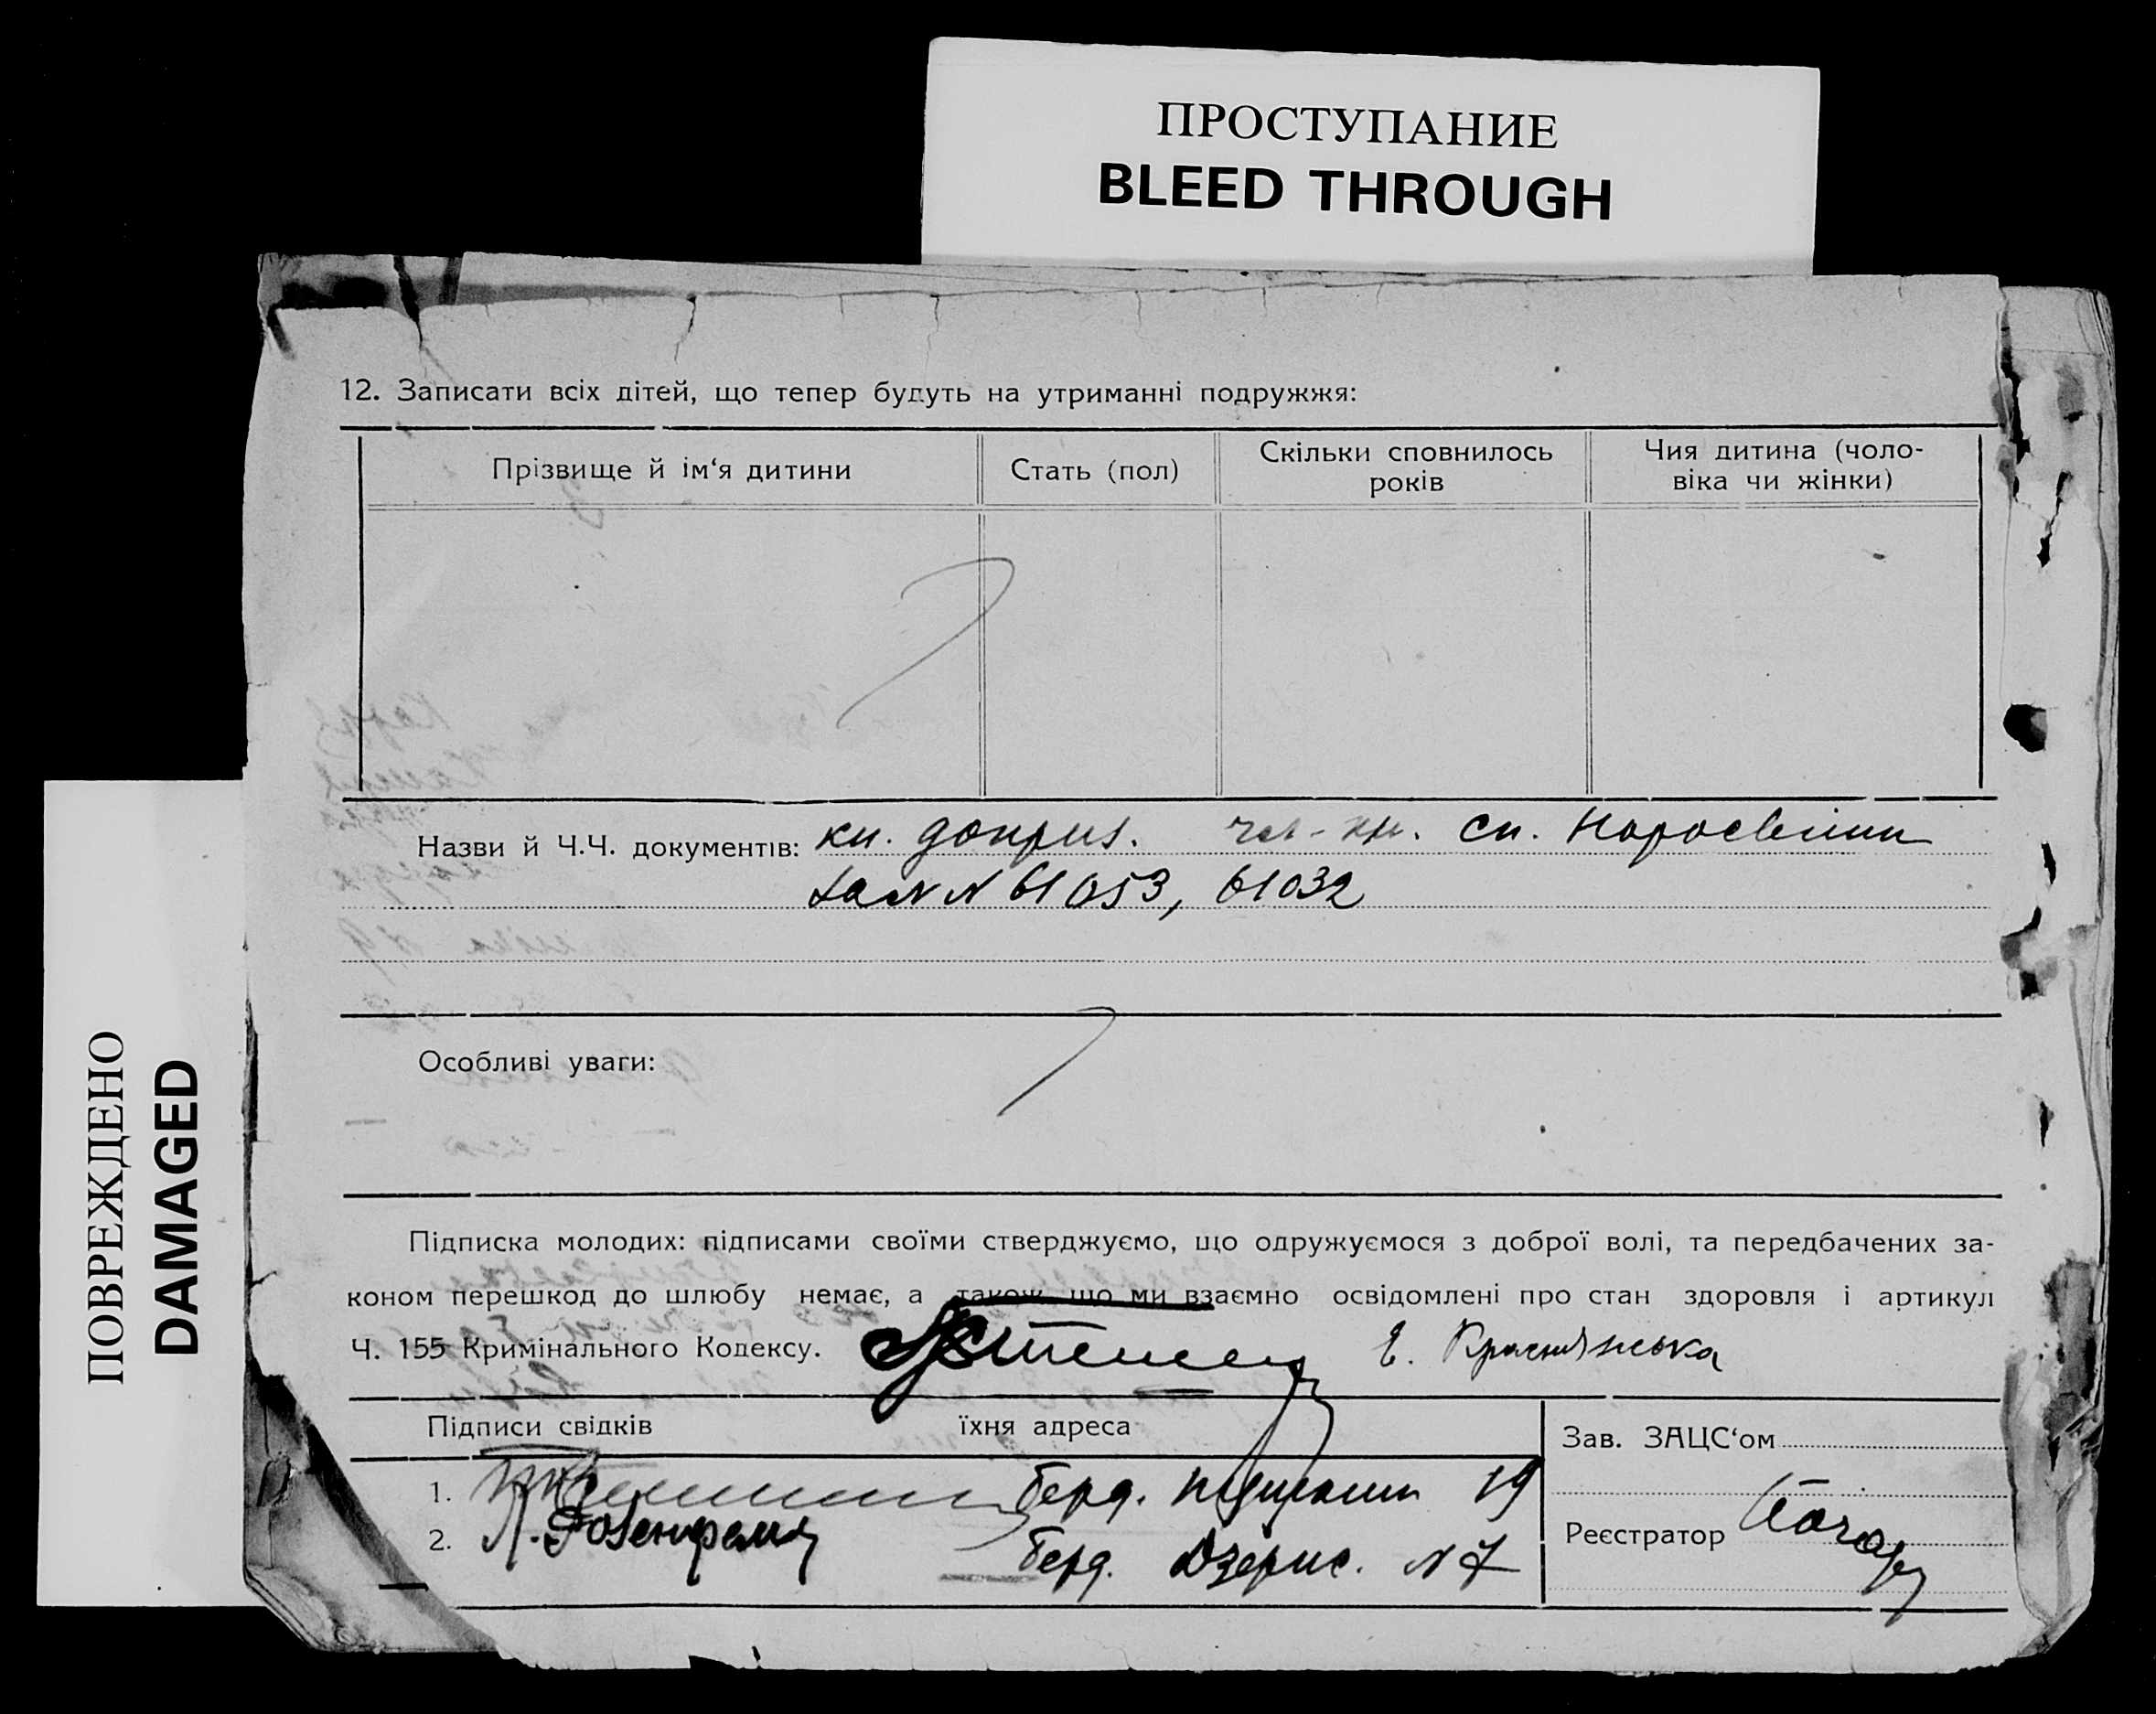 ПРОСТУПАНИЕ
BLEED THROUGH
ПОВРЕЖДЕНО
DAMAGED
12. Записати всіх дітей, що тепер будуть на утриманні подружжя:
Прізвище й ім‘я дитини
Стать (пол)
Скільки сповнилось
років
Чия дитина (чоло-
віка чи жінки)
Назви й Ч.Ч. документів: кн. доприз. сп.
61053, 61032
Особливі уваги:
Підписка молодих: підписами своїми стверджуємо, що одружуємося з доброї волі, та передбачених за-
коном перешкод до шлюбу немає, а також що ми взаємно освідомлені про стан здоровля і артикул
Ч. 155 Кримінального Кодексу. Е. Краснянська
Підписи свідків
їхня адреса
Зав. ЗАЦС‘ом
1. Берд. 19
2. Л. Розенфельд Берд. Дзерж. N 7
Реєстратор